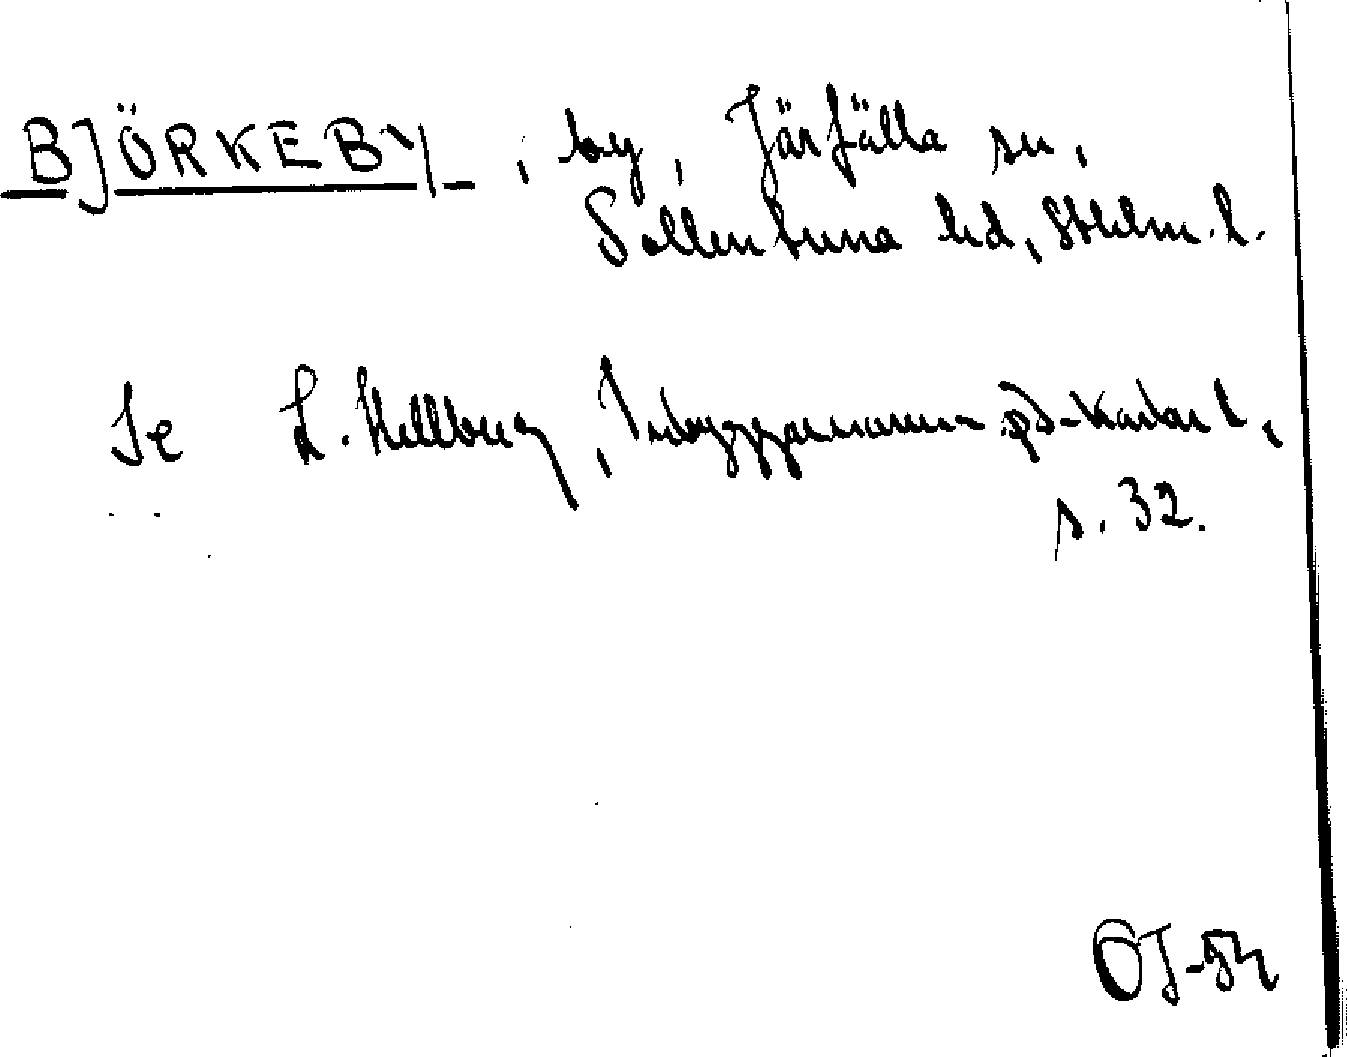 BJÖRKEBY, by, Järfälla sn,
Sollentuna hd, Sthlm. l.
Se L. Hellberg, Inbyggarnamn
s. 32.